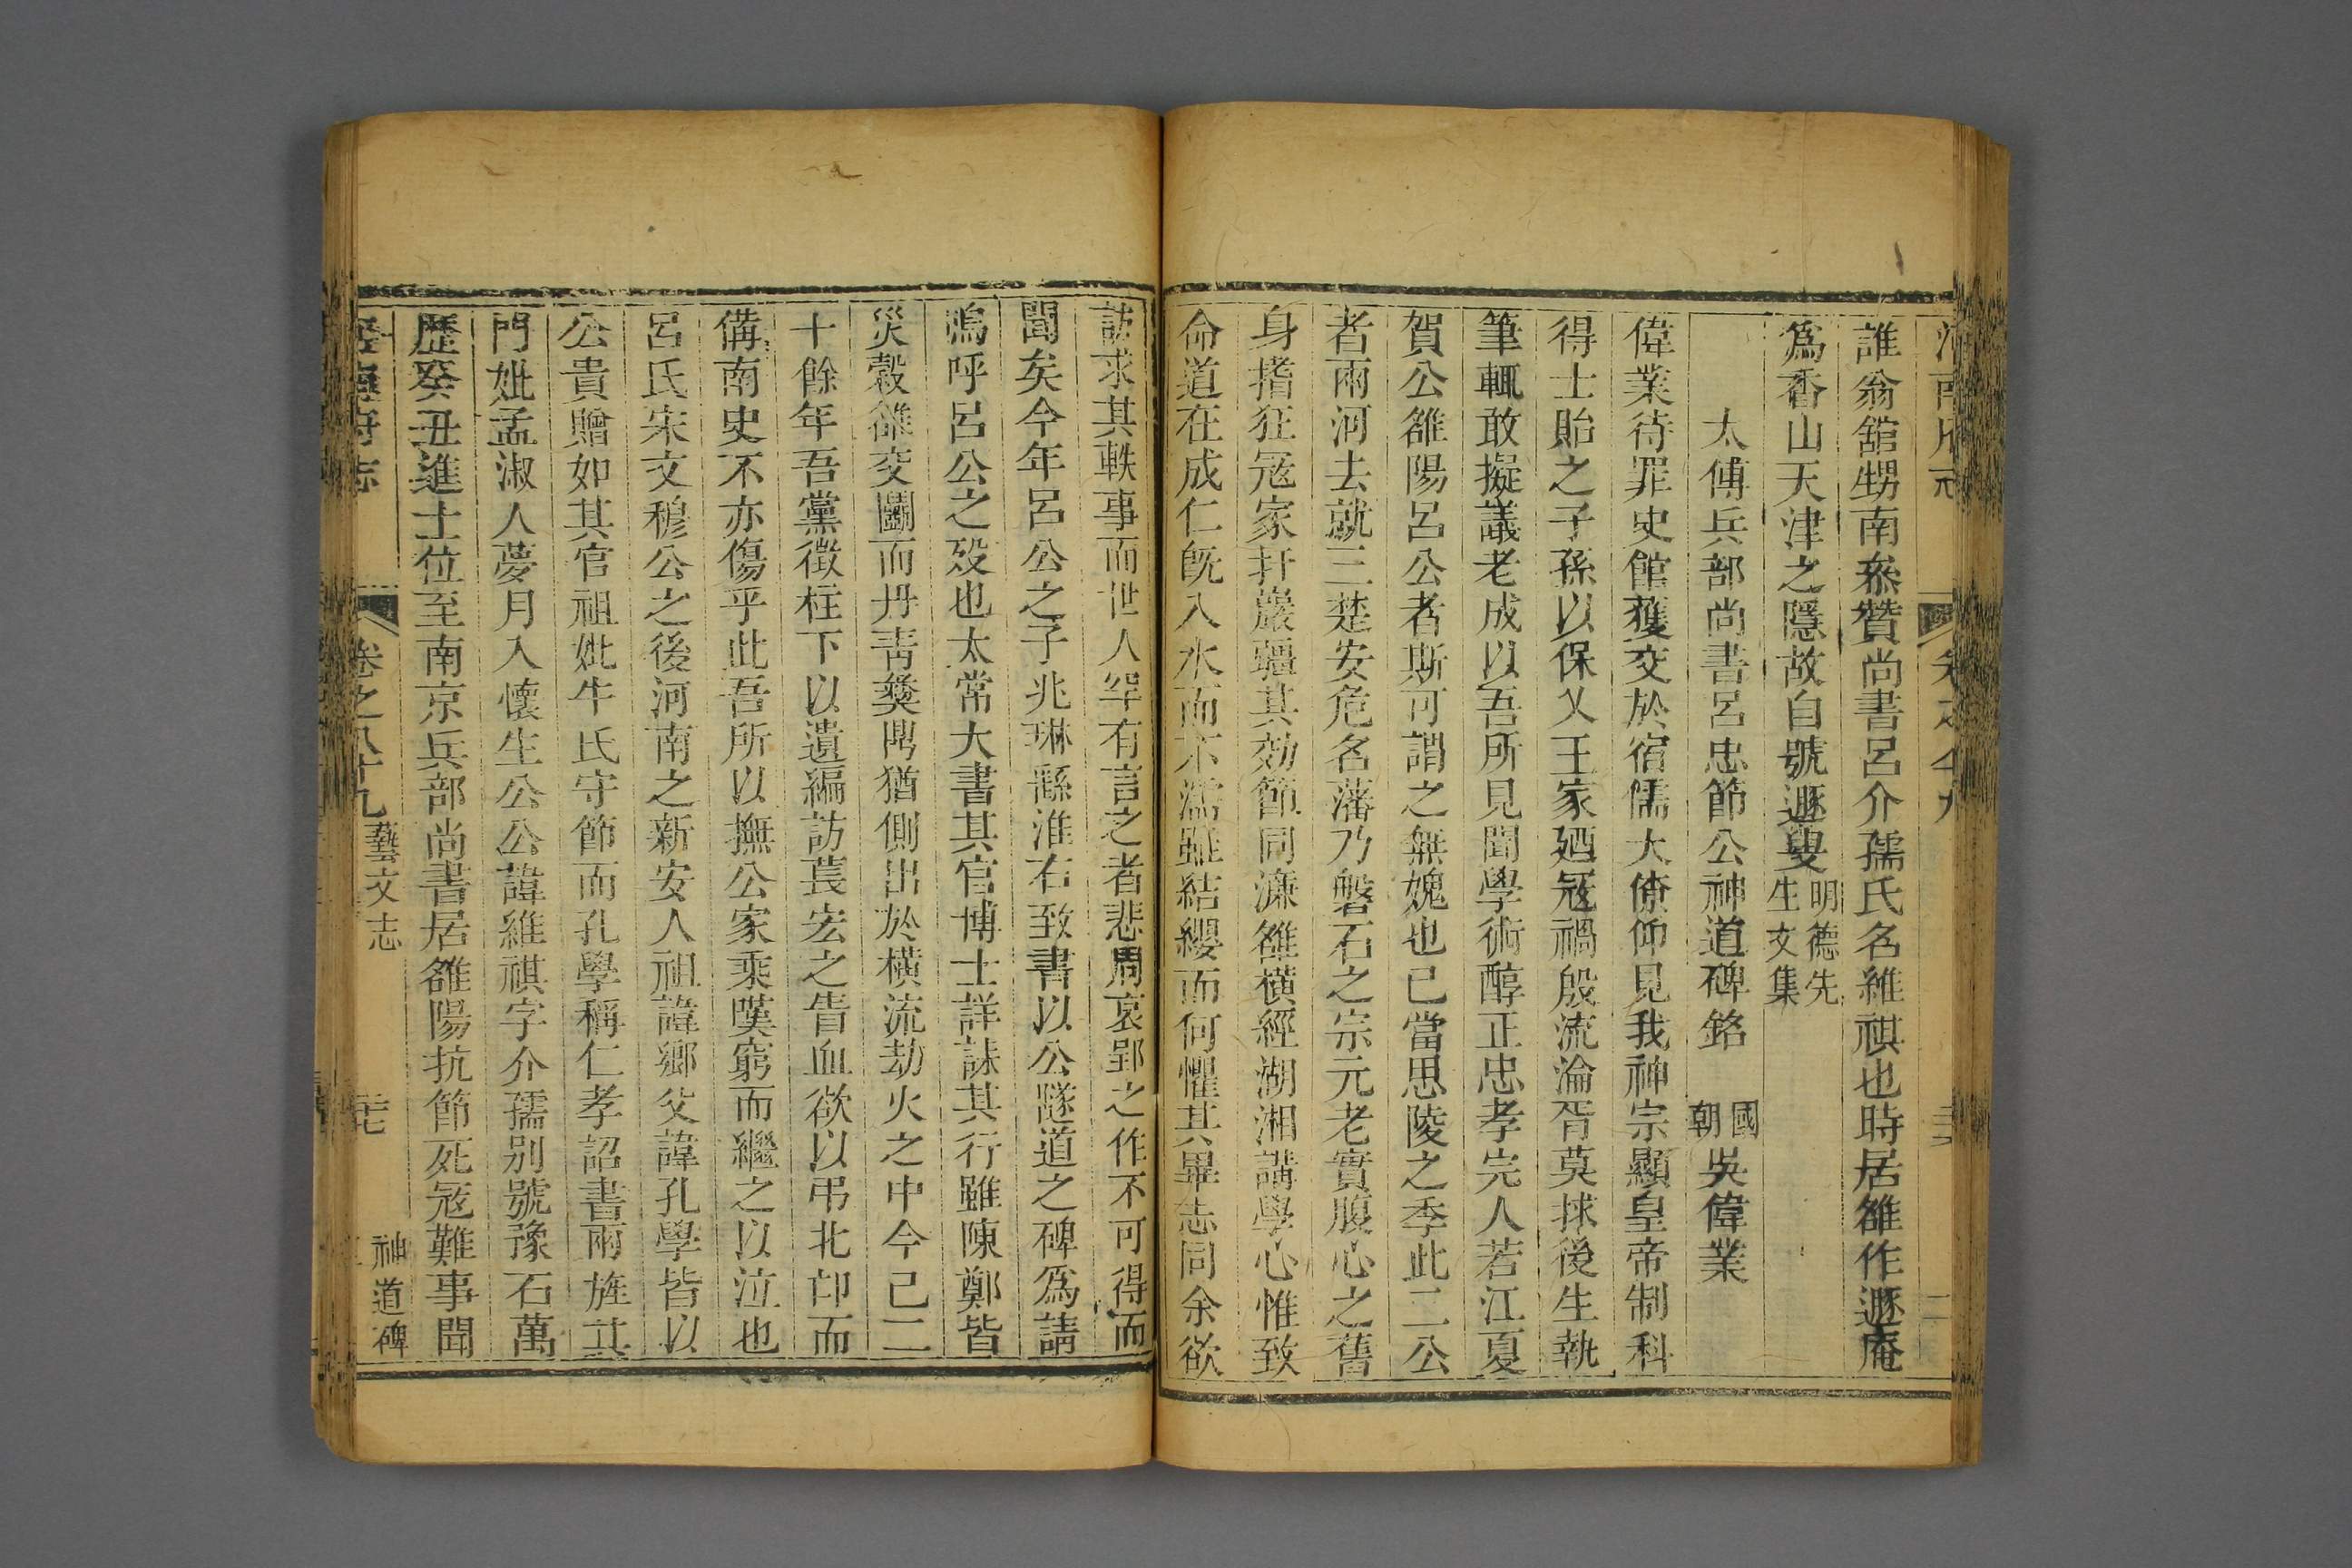 誰翁舘甥南叅贊尚書呂介孺氏名維祺也時居雒作遯庵
爲香山天津之隱故自號遯叟明德先生文集
太傅兵部尚書呂忠節公神道碑銘 國朝吳偉業
偉業待罪史館獲交於宿儒大僚仰見我神宗顯皇帝制科
得士貽之子孫以保乂王家廼冦禍殷流淪胥莫捄後生執
筆輒敢擬議老成以吾所見聞學術醇正忠孝完人若江夏
賀公雒陽呂公者斯可謂之無媿也已當思陵之季此二公
者兩河去就三楚安危名藩乃磐石之宗元老實腹心之舊
身搘狂冦家扞嚴疆其効節同濂雒橫經湖湘講學心惟致
命道在成仁旣入水而不濡雖結纓而何懼其畢志同余欲
訪求其軼事而世人罕有言之者悲周哀郢之作不可得而
聞矣今年呂公之子兆琳繇淮右致書以公隧道之碑爲請
嗚呼呂公之歿也太常大書其官博士詳誄其行雖陳鄭皆
災榖雒交鬭而丹靑彝鼎猶側出於橫流劫火之中今已二
十餘年吾黨徴柱下以遺編訪萇宏之眚血欲以弔北邙而
備南史不亦傷乎此吾所以撫公家乘嘆窮而繼之以泣也
呂氏宋文穆公之後河南之新安人祖諱鄉父諱孔學皆以
公貴贈如其官祖妣牛氏守節而孔學稱仁孝詔書兩旌其
門妣孟淑人夢月入懷生公公諱維祺字介孺别號豫石萬
歷癸丑進士位至南京兵部尚書居雒陽抗節死冦難事聞
卷之八十九 藝文志 神道碑